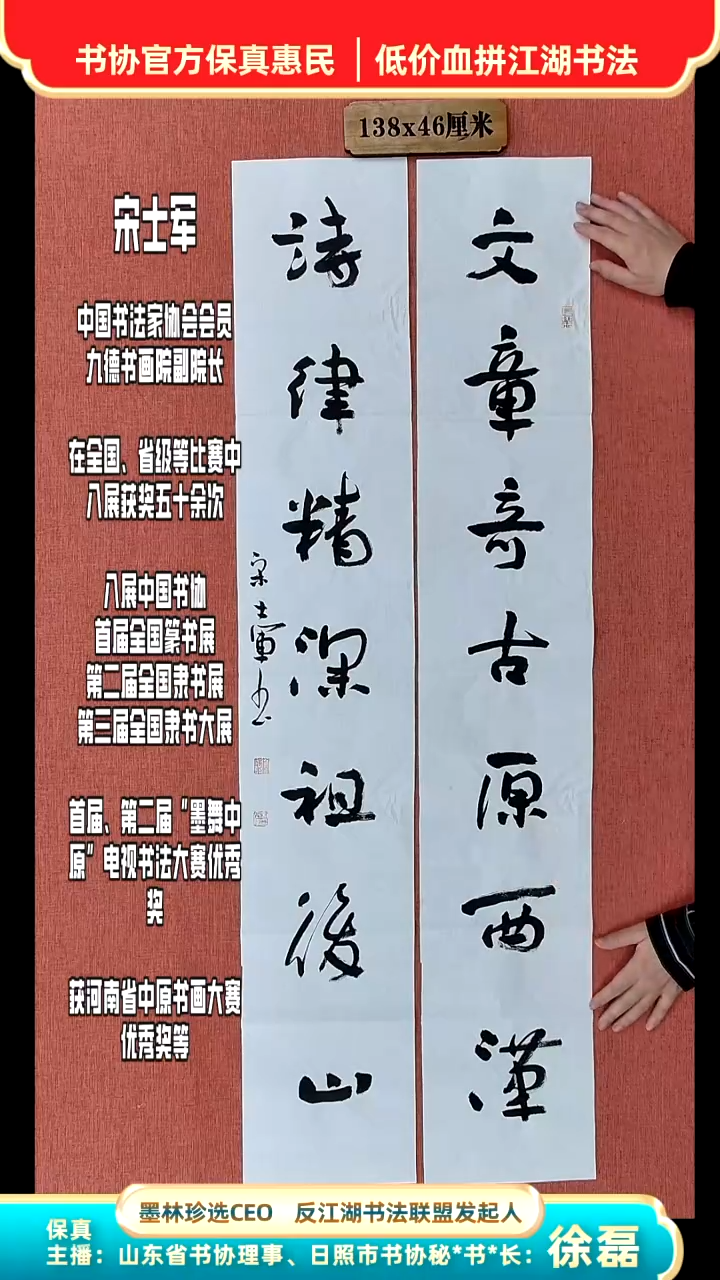 书协官方保真惠民 | 低价血拼江湖书法
138x46厘米
宋士军
中国书法家协会会员
九德书画院副院长
在全国、省级等比赛中
入展获奖五十余次
入展中国书协
首届全国篆书展
第二届全国隶书展
第三届全国隶书大展
首届、第二届“墨舞中
原”电视书法大赛优秀
奖
获河南省中原书画大赛
优秀奖等
文章奇古原西漢
詩律精深祖後山
宋士軍书
墨林珍选CEO 反江湖书法联盟发起人
保真
主播：山东省书协理事、日照市书协秘*书*长：徐磊